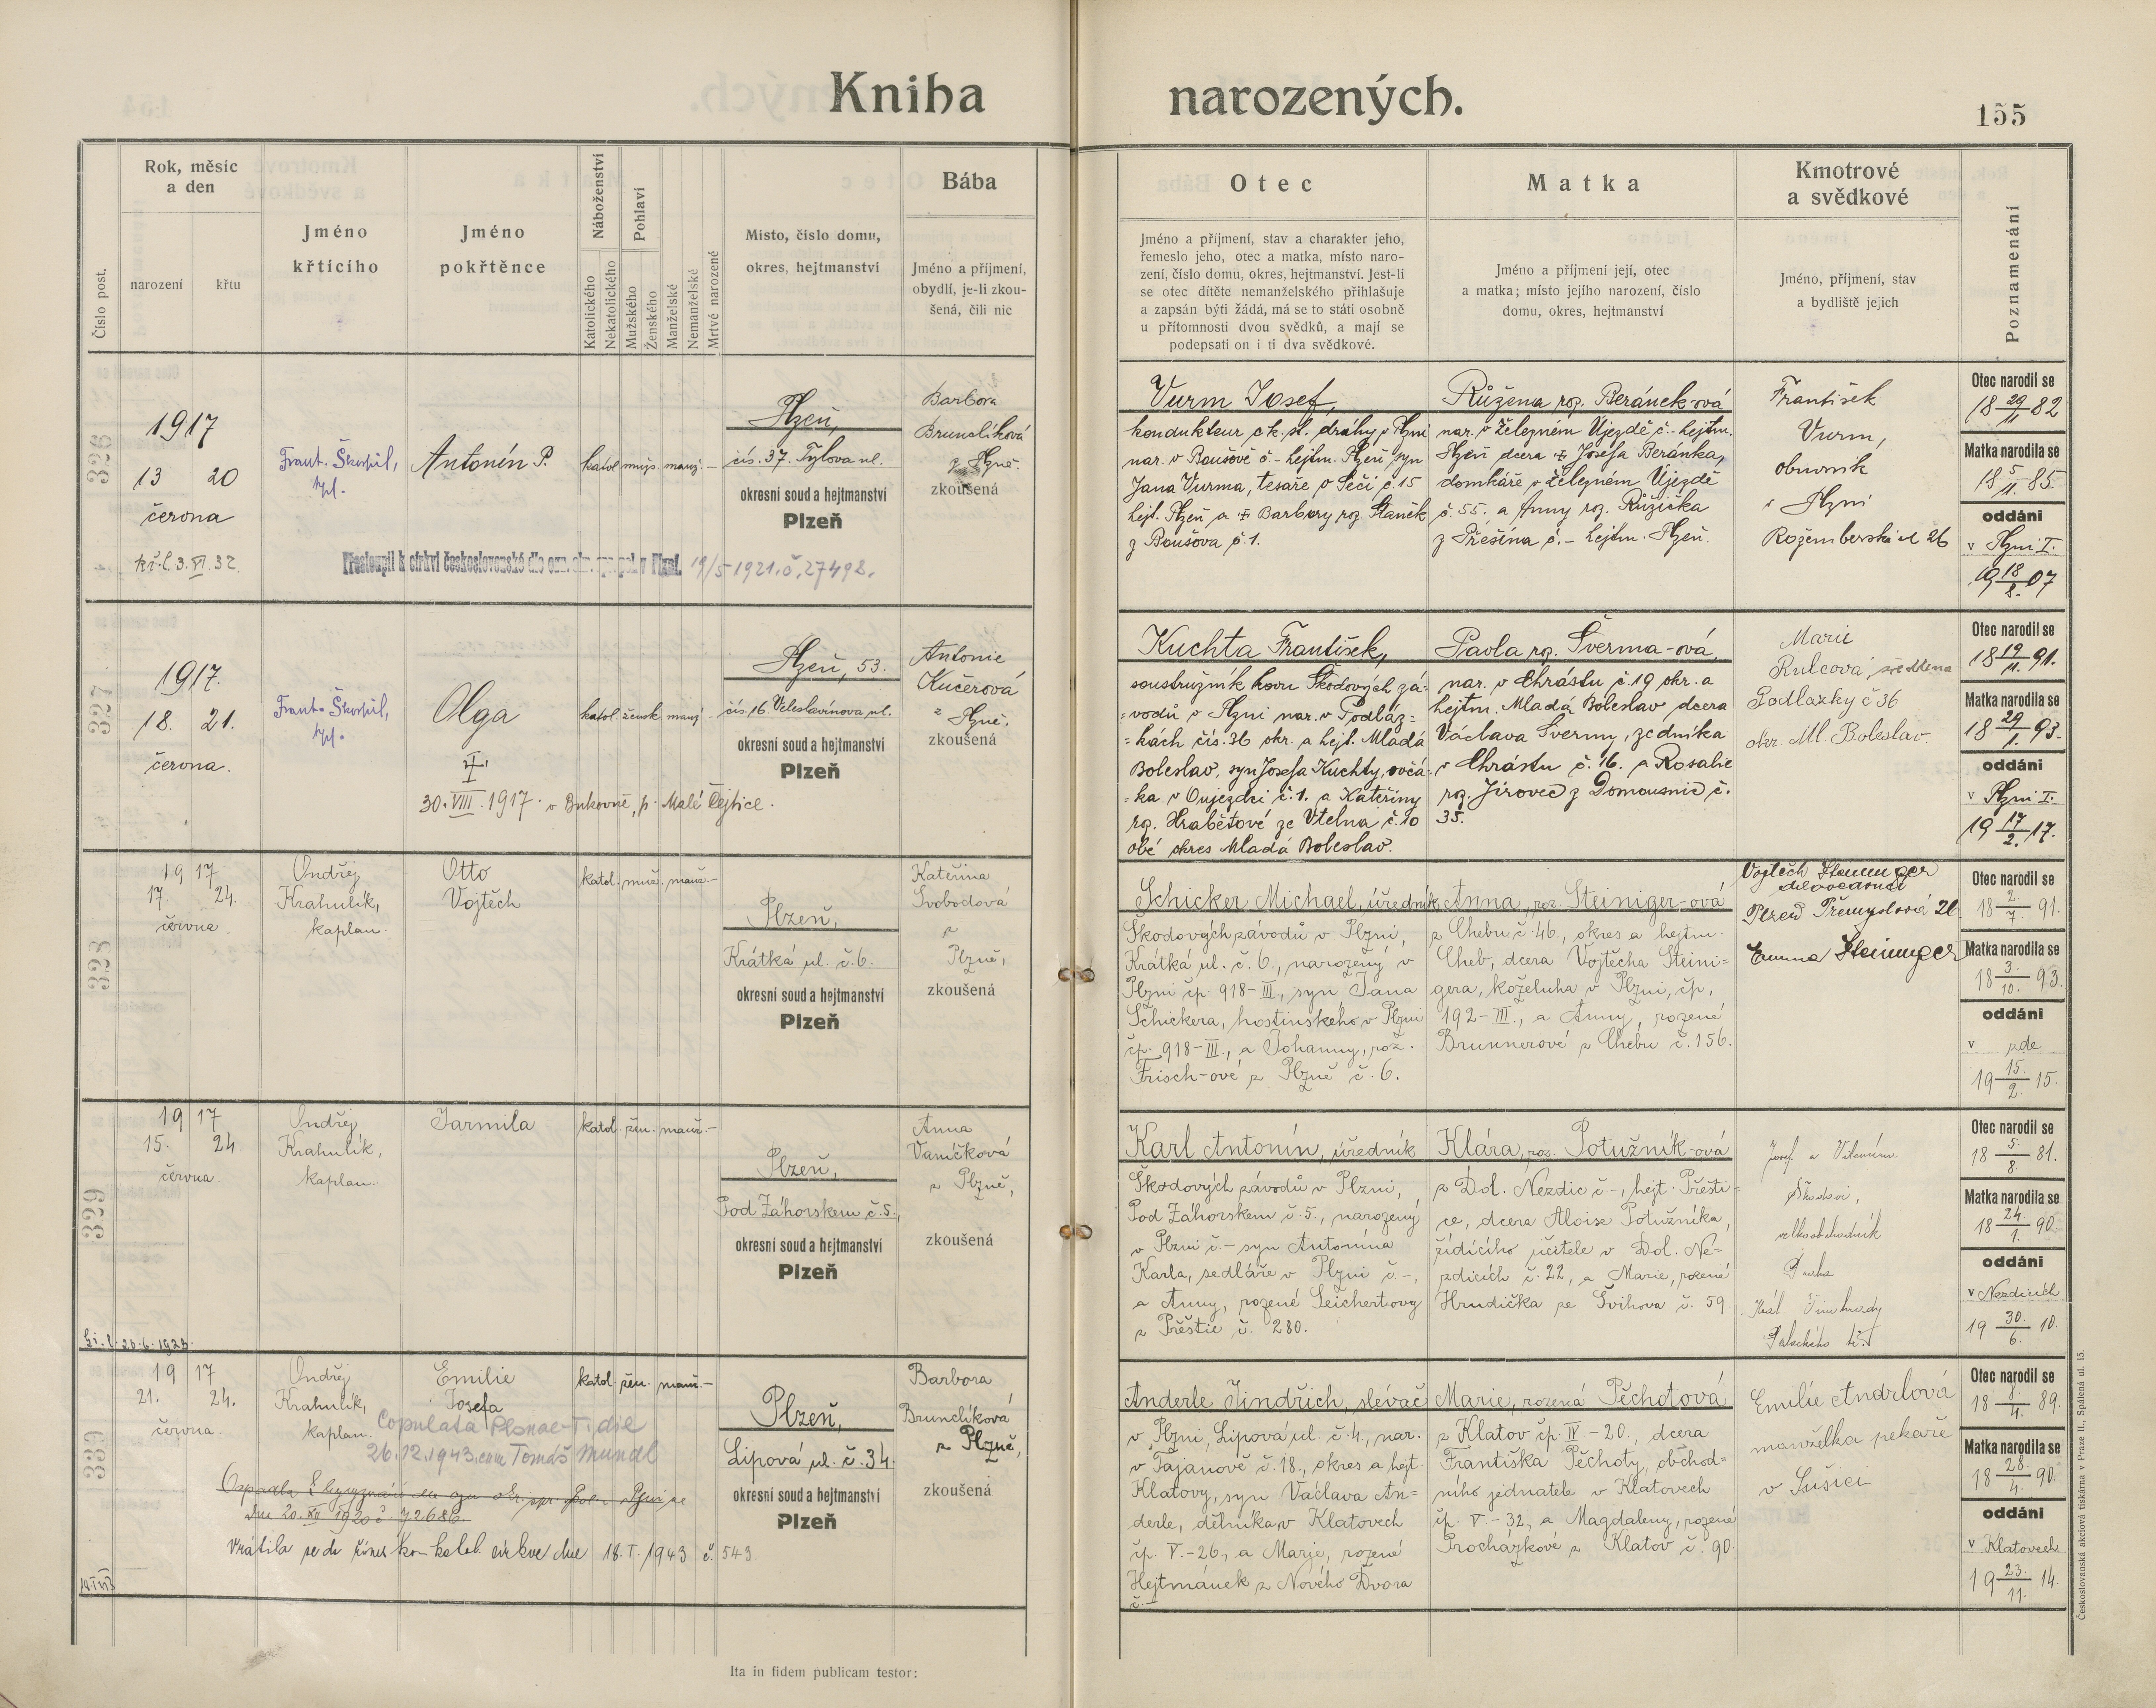 Kniha narozených.
155
Číslo post.
Rok, měsíc
a den
narození
křtu
Jméno
křtícího
Jméno
pokřtěnce
Náboženství
Katolického
Nekatolického
Pohlaví
Mužského
Ženského
Manželské
Nemanželské
Mrtvé narozené
Místo, číslo domu,
okres, hejtmanství
Bába
Jméno a příjmení,
obydlí, je-li zkou-
šená, čili nic
Otec
Jméno a příjmení, stav a charakter jeho,
řemeslo jeho, otec a matka, místo naro-
zení, číslo domu, okres, hejtmanství. Jest-li
se otec dítěte nemanželského přihlašuje
a zapsán býti žádá, má se to státi osobně
u přítomnosti dvou svědků, a mají se
podepsati on i ti dva svědkové.
Matka
Jméno a příjmení její, otec
a matka; místo jejího narození, číslo
domu, okres, hejtmanství
Kmotrové
a svědkové
Jméno, příjmení, stav
a bydliště jejich
Poznamenání
326
1917
13 20
června
kř. l. 3. VI. 32.
Frant. Škorpil,
kpl.
Antonín P.
katol. mužs. manž. –
Plzeň,
čís. 37. Tylova ul.
okresní soud a hejtmanství
Plzeň
Barbora
Brunclíková
z Plzně.
zkoušená
Přestoupil k církvi československé dle ozn. okr. spr. pol. v Plzni. 19/5 1921. č. 27492.
Vurm Josef,
kondukteur c.k. st. dráhy v Plzni
nar. v Boušově č. – hejtm. Plzeň, syn
Jana Vurma, tesaře v Seči č. 15
hejt. Plzeň a † Barbory roz. Staněk
z Boušova č. 1.
Růžena roz. Beránek-ová
nar. v Železném Újezdě č. – hejtm.
Plzeň dcera † Josefa Beránka,
domkáře v Železném Újezdě
č. 55. a Anny roz. Růžička
z Přešína č. – hejtm. Plzeň.
František
Vurm,
obuvník
v Plzni
Rožemberská ul. 26
Otec narodil se
18 29/11. 82
Matka narodila se
18 5/11. 85.
oddáni
v Plzni I.
19 18/8. 07
327
1917.
18. 21.
června.
Frant. Škorpil,
kpl.
Olga
†
30. VIII. 1917. v Bukovně, p. Malé Čejtice.
katol. žensk. manž. –
Plzeň, 53.
čís. 16. Veleslavínova ul.
okresní soud a hejtmanství
Plzeň
Antonie
Kučerová
z Plzně.
zkoušená
Kuchta František,
soustružník kovu Škodových zá-
vodů v Plzni nar. v Podláz-
kách čís. 36 okr. a hejt. Mladá
Boleslav, syn Josefa Kuchty, ovčá-
ka v Oujezdci č. 1. a Kateřiny
roz. Hrabětové ze Vtelna č. 10
obé okres Mladá Boleslav.
Pavla roz. Šverma-ová,
nar. v Chrástu č. 19 okr. a
hejtm. Mladá Boleslav dcera
Václava Švermy, zedníka
v Chrástu č. 16. a Rosalie
roz. Jirovec z Domousnic č.
35.
Marie
Rulcová
Podlazky č 36
okr. Ml. Boleslav.
Otec narodil se
18 19/11. 91.
Matka narodila se
18 29/1. 93.
oddáni
v Plzni I.
19 17/2. 17.
328
19 17
17. 24.
června.
Ondřej
Krahulík,
kaplan.
Otto
Vojtěch
katol. muž. manž. –
Plzeň,
Krátká ul. č. 6.
okresní soud a hejtmanství
Plzeň
Kateřina
Svobodová
z
Plzně,
zkoušená
Schicker Michael, úředník
Škodových závodů v Plzni,
Krátká ul. č. 6., narozený v
Plzni čp. 918-III., syn Jana
Schickera, hostinského v Plzni
čp. 918-III., a Johanny, roz.
Frisch-ové z Plzně č. 6.
Anna, roz. Steiniger-ová
z Chebu č. 46, okres a hejtm.
Cheb, dcera Vojtěcha Steini-
gera, koželuha v Plzni, čp.
192-III., a Anny, rozené
Brunnerové z Chebu č. 156.
Vojtěch Steininger
Plzeň Přemyslova 26.
Emma Steininger
Otec narodil se
18 2/7. 91.
Matka narodila se
18 3./10. 93.
oddáni
v zde
19 15./2. 15.
329
19 17
15. 24.
června.
Ondřej
Krahulík,
kaplan.
Jarmila
katol. žen. manž. –
Plzeň,
Pod Záhorskem č. 5.,
okresní soud a hejtmanství
Plzeň
Anna
Vaníčková
z Plzně,
zkoušená
Karl Antonín, úředník
Škodových závodů v Plzni,
Pod Záhorskem č. 5., narozený
v Plzni č. – syn Antonína
Karla, sedláře v Plzni č. –,
a Anny, rozené Seichertovy
z Přeštic č. 280.
Klára, roz. Potužník-ová
z Dol. Nezdic č. –, hejt. Přešti-
ce, dcera Aloise Potužníka,
řídícího učitele v Dol. Ne-
zdicích č. 22, a Marie, rozené
Hrudička ze Švihova č. 59.
Josef a Vilemína
Škodovi,
velkoobchodník
Praha
Král. Vinohrady
Palackého tř.
Otec narodil se
18 5/8. 81.
Matka narodila se
18 24./1. 90.
oddáni
v Nezdicích
19 30./6. 10.
330
19 17
21. 24.
června.
Ondřej
Krahulík,
kaplan.
Emilie
Josefa
Copulata Plsnae-I. die
26.12.1943. cum Tomáš Mundl
dne 20. XII 1920 č. 72686.
Vrátila se do římsko-katol. církve dne 18. I. 1943 č. 543
katol. žen. manž. –
Plzeň,
Lipová ul. č. 34.
okresní soud a hejtmanství
Plzeň
Barbora
Brunclíková
z Plzně,
zkoušená
Anderle Jindřich, slévač
v Plzni, Lipová ul. č. 4., nar.
v Tajanově č. 18., okres a hejt.
Klatovy, syn Václava An-
derle, dělníka v Klatovech
čp. V.-26., a Marie, rozené
Hejtmánek z Nového Dvora
č. –
Marie, rozená Pěchotová
z Klatov čp. IV.-20., dcera
Františka Pěchoty, obchod-
ního jednatele v Klatovech
čp. V.-32, a Magdaleny, rozené
Procházkové z Klatov č. 90.
Emilie Andrlová
manželka pekaře
v Sušici
Otec narodil se
18 8./4. 89.
Matka narodila se
18 28./4. 90.
oddáni
v Klatovech
19 23./11. 14.
Ita in fidem publicam testor:
Československá akciová tiskárna v Praze II., Spálená ul. 15.